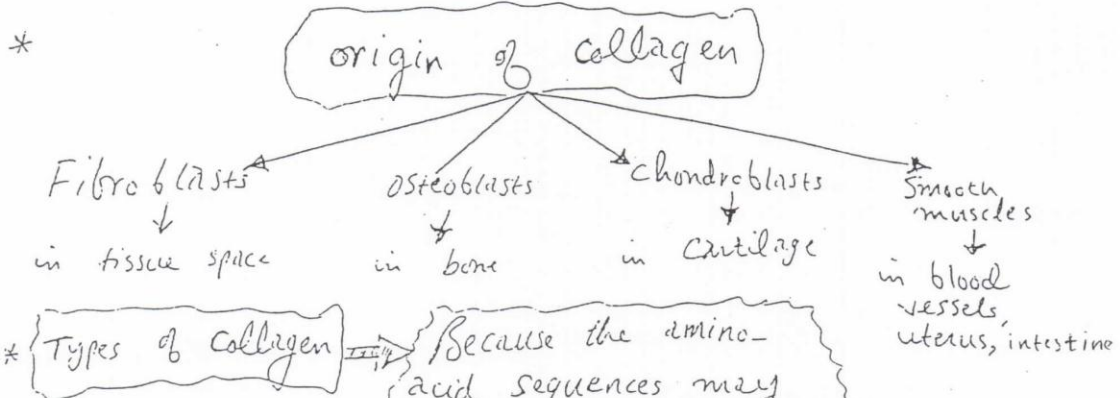 * origin of collagen
Fibroblasts
in tissue space
osteoblasts
in bone
Chondroblasts
in cartilage
Smooth
muscles
in blood
vessels,
uterus, intestine
* Types of Collagen
Because the amino-
acid sequences may